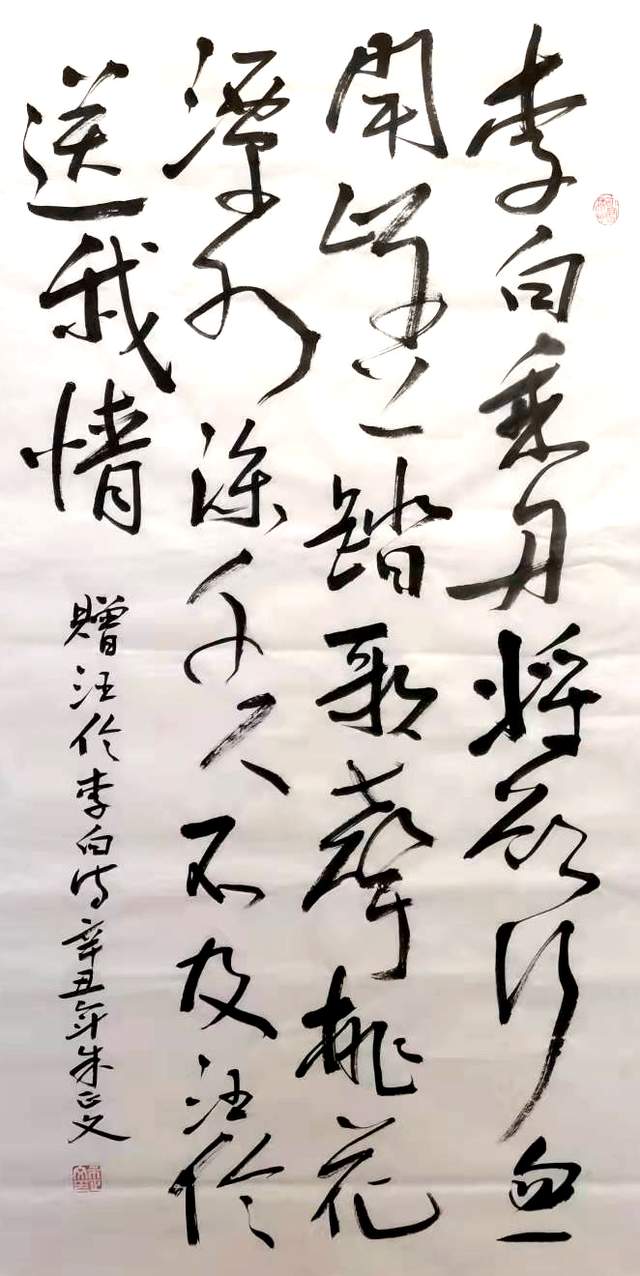 李白乘舟将欲行忽
闻岸上踏歌聲桃花
潭水深千尺不及汪伦
送我情
赠汪伦李白诗辛丑年朱正文